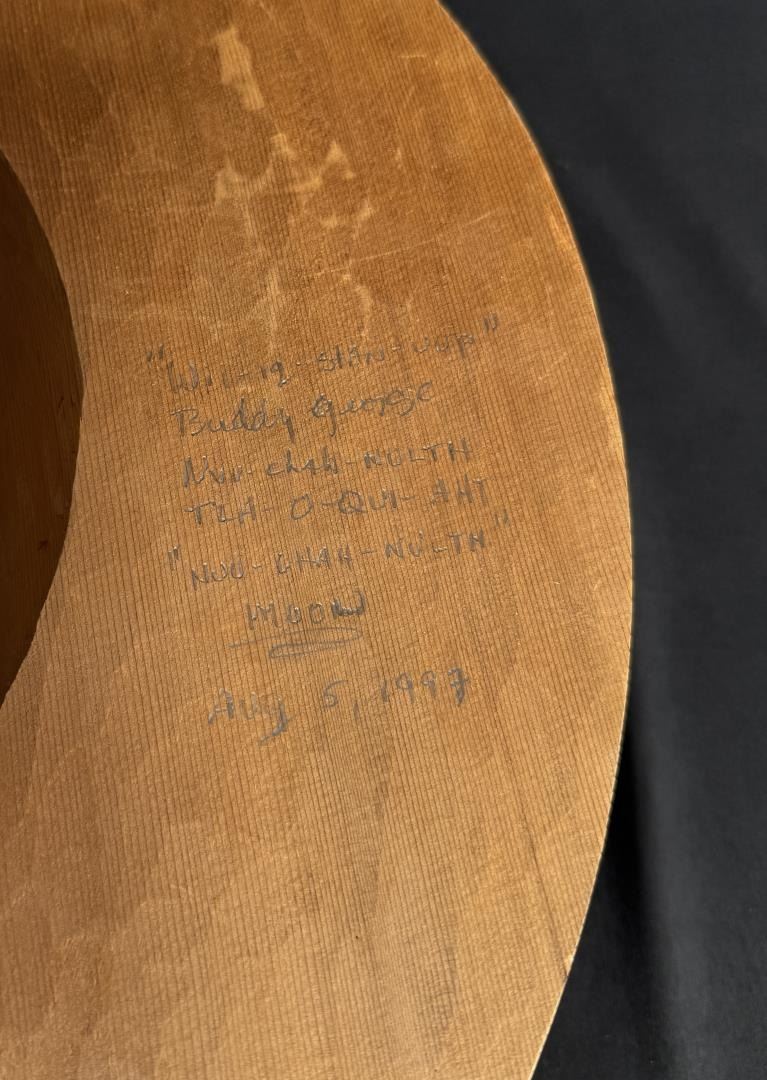 "Wii-iq-stan-uup"
Buddy George
Nuu-chah-NULTH
TLA-O-QUI-AHT
"NUU-CHAH-NULTH"
MOON
Aug 5, 1997